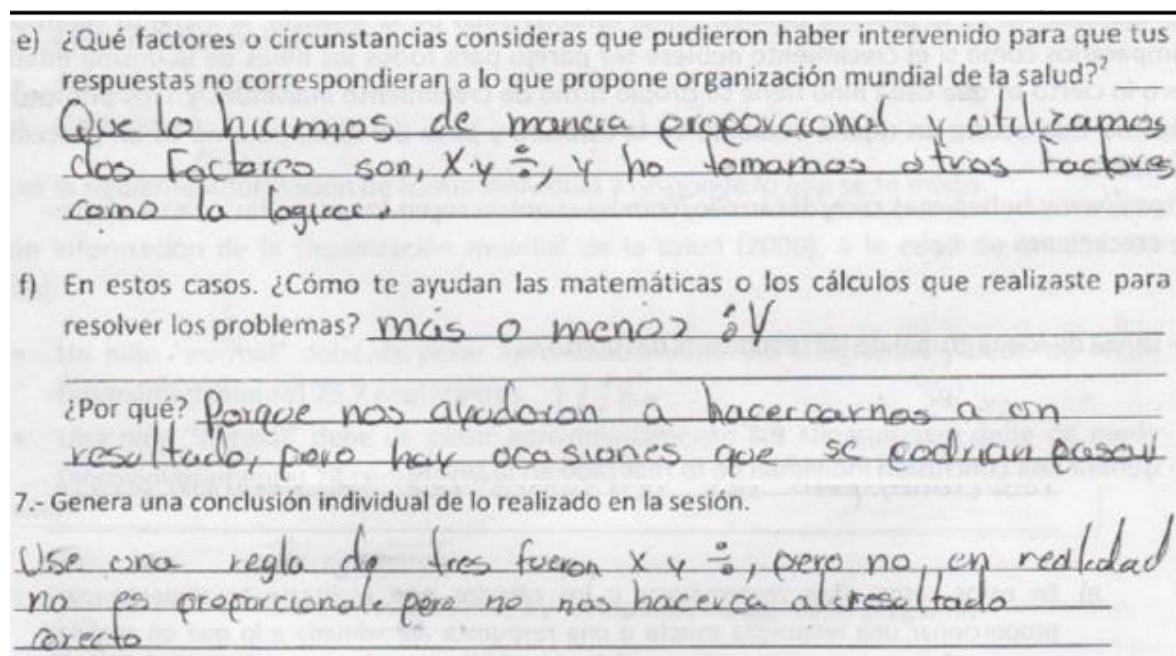 e) ¿Qué factores o circunstancias consideras que pudieron haber intervenido para que tus
respuestas no correspondieran a lo que propone organización mundial de la salud?
Que lo hicimos de manera proporcional y utilizamos
dos Factores son, X y ÷, y no tomamos otros factores
como la logica.
f) En estos casos. ¿Cómo te ayudan las matemáticas o los cálculos que realizaste para
resolver los problemas? más o menos
¿Por qué? Porque nos ayudaron a hacercarnos a un
resultado, pero hay ocasiones que se podrian pasar
7.- Genera una conclusión individual de lo realizado en la sesión.
Use una regla de tres fueron X y ÷, pero no en realidad
no es proporcional, pero no nos hacerca al resultado
correcto